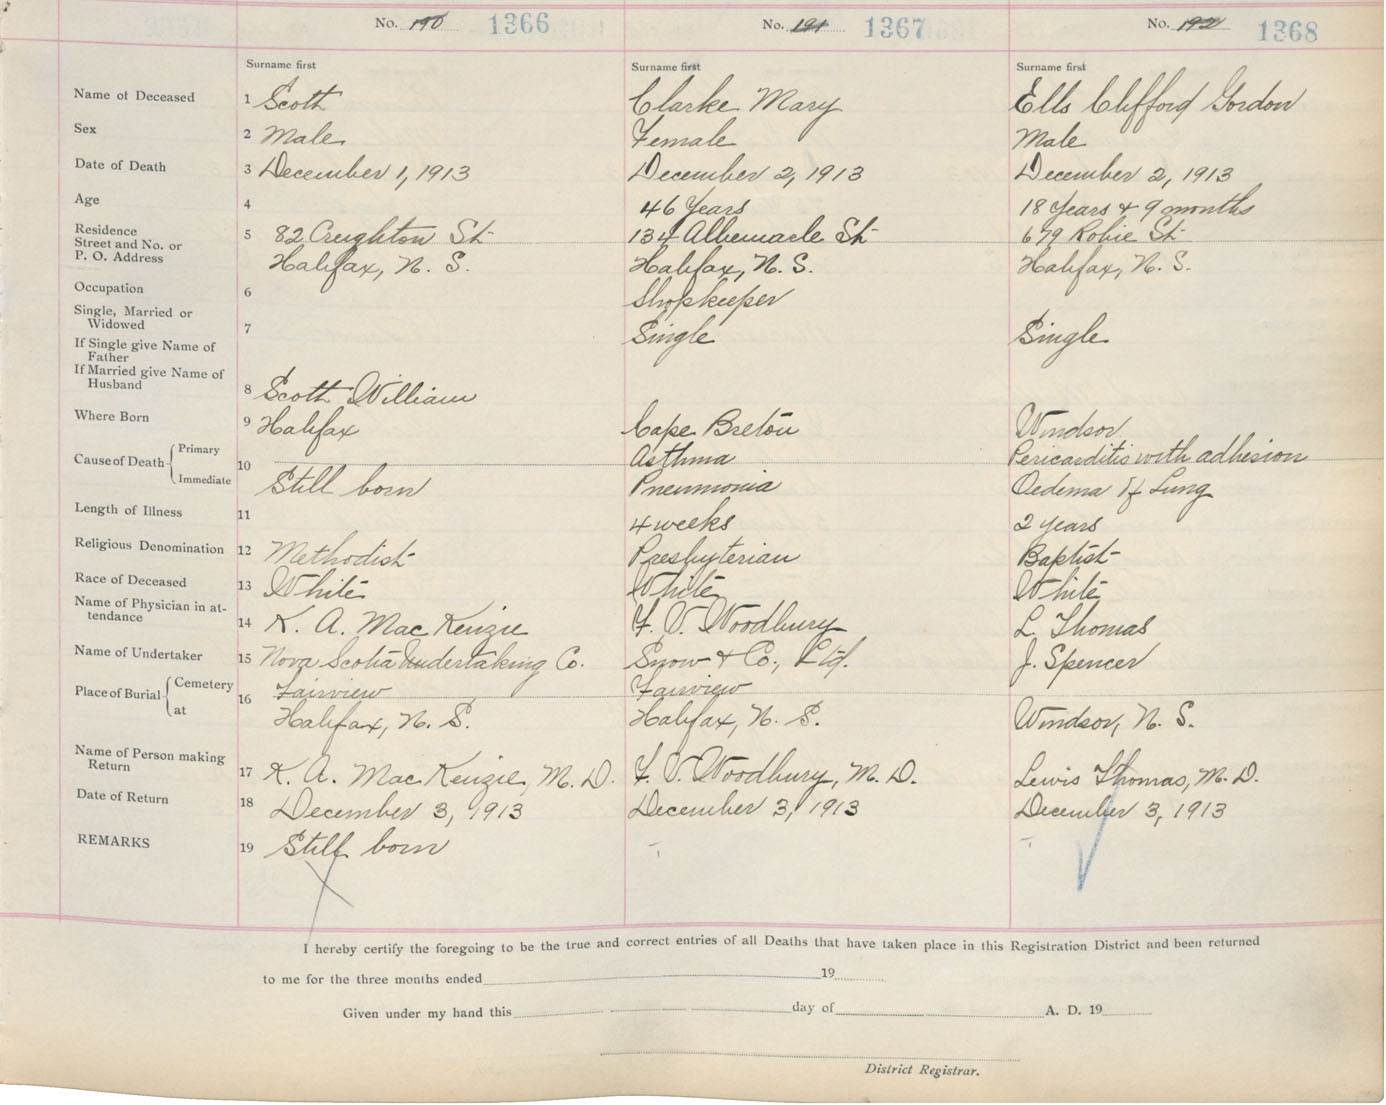 No. 190 1366 No. 191 1367 No. 192 1368
Surname first Surname first Surname first
Name of Deceased 1 Scott Clarke Mary Ells Clifford Gordon
Sex 2 Male Female Male
Date of Death 3 December 1, 1913 December 2, 1913 December 2, 1913
Age 4 46 Years 18 Years & 9 months
Residence 5 82 Creighton St 134 Albemarle St 679 Robie St
Street and No. or
P. O. Address Halifax, N. S. Halifax, N. S. Halifax, N. S.
Occupation 6 Shopkeeper
Single, Married or
Widowed 7 Single Single
If Single give Name of
Father
If Married give Name of
Husband 8 Scott William
Where Born 9 Halifax Cape Breton Windsor
Cause of Death Primary 10 Asthma Pericarditis with adhesion
Immediate Still born Pneumonia Oedema of Lung
Length of Illness 11 4 weeks 2 years
Religious Denomination 12 Methodist Presbyterian Baptist
Race of Deceased 13 White White White
Name of Physician in at-
tendance 14 K. A. MacKenzie F. V. Woodbury L. Thomas
Name of Undertaker 15 Nova Scotia Undertaking Co. Snow & Co., Ltd. J. Spencer
Place of Burial Cemetery 16 Fairview Fairview
at Halifax, N. S. Halifax, N. S. Windsor, N. S.
Name of Person making
Return 17 K. A. MacKenzie, M. D. F. V. Woodbury, M. D. Lewis Thomas, M. D.
Date of Return 18 December 3, 1913 December 3, 1913 December 3, 1913
REMARKS 19 Still born
I hereby certify the foregoing to be the true and correct entries of all Deaths that have taken place in this Registration District and been returned
to me for the three months ended 19
Given under my hand this day of A. D. 19
District Registrar.